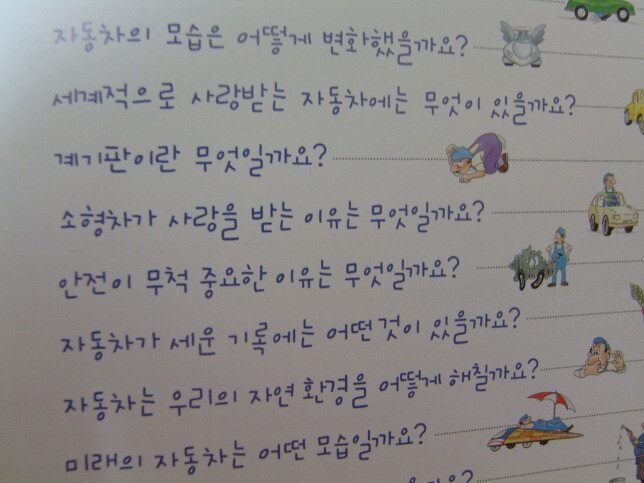 자동차의 모습은 어떻게 변화했을까요?
세계적으로 사랑받는 자동차에는 무엇이 있을까요?
계기판이란 무엇일까요?
소형차가 사랑을 받는 이유는 무엇일까요?
안전이 무척 중요한 이유는 무엇일까요?
자동차가 세운 기록에는 어떤 것이 있을까요?
자동차는 우리의 자연 환경을 어떻게 해칠까요?
미래의 자동차는 어떤 모습일까요?